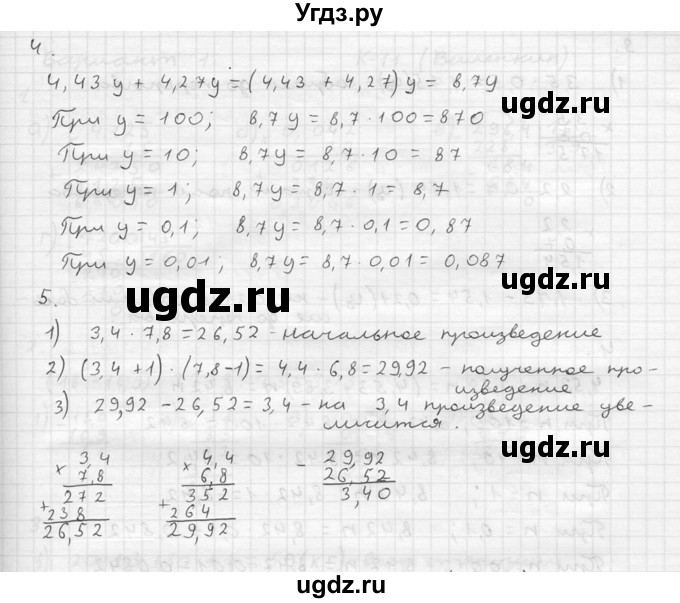 Угдз.ру
4.
4,43у + 4,27у = (4,43 + 4,27)у = 8,7у
При у = 100; 8,7у = 8,7 · 100 = 870
При у = 10; 8,7у = 8,7 · 10 = 87
При у = 1; 8,7у = 8,7 · 1 = 8,7
При у = 0,1; 8,7у = 8,7 · 0,1 = 0,87
При у = 0,01; 8,7у = 8,7 · 0,01 = 0,087
5.
1) 3,4 · 7,8 = 26,52 - начальное произведение
2) (3,4 + 1) · (7,8 - 1) = 4,4 · 6,8 = 29,92 - полученное про-
изведение
3) 29,92 - 26,52 = 3,4 - на 3,4 произведение уве-
личится.
3,4 4,4 - 29,92
× 7,8 × 6,8 26,52
272 352 3,40
+ 238 + 264
26,52 29,92
ugdz.ru
ugdz.ru
ugdz.ru
ugdz.ru
ugdz.ru
ugdz.ru
ugdz.ru
ugdz.ru